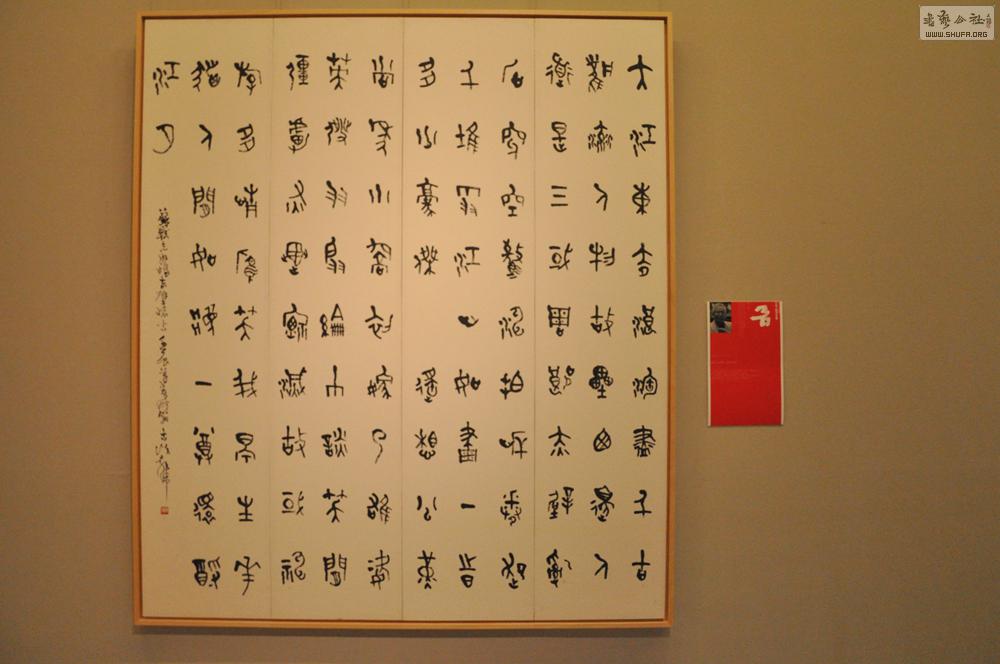 大江東去浪淘盡千古
風流人物故壘西邊人
道是三國周郎赤壁亂
石穿空驚濤拍岸卷起
千堆雪江山如畫一時
多少豪傑遙想公瑾
當年小喬初嫁了雄姿
英發羽扇綸巾談笑間
強虜灰飛煙滅故國神
遊多情應笑我早生華
髮人間如夢一尊還酹
江月
蘇軾念奴嬌
书艺公社
WWW.SHUFA.ORG